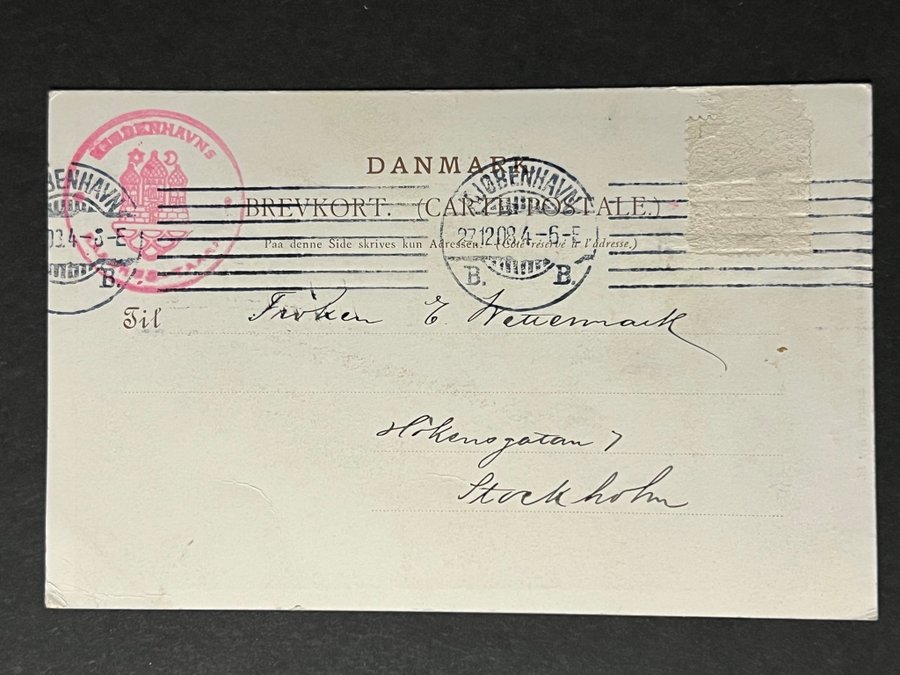 KJØBENHAVNS
DANMARK
KJØBENHAVN
BREVKORT. (CARTE POSTALE.)
27.12.03.4-5-E
Paa denne Side skrives kun Adressen. (Côté réservé à l'adresse.)
B. B.
Til Fröken E. Wettermark
Hökensgatan 7
Stockholm